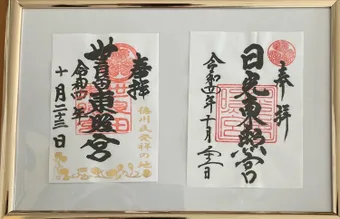 奉拝
日光東照宮
令和四年十月二三日
奉拝
徳川氏発祥の地
世良田東照宮
令和四年
十月二十三日